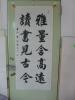 雅量含高遠
讀書見古今